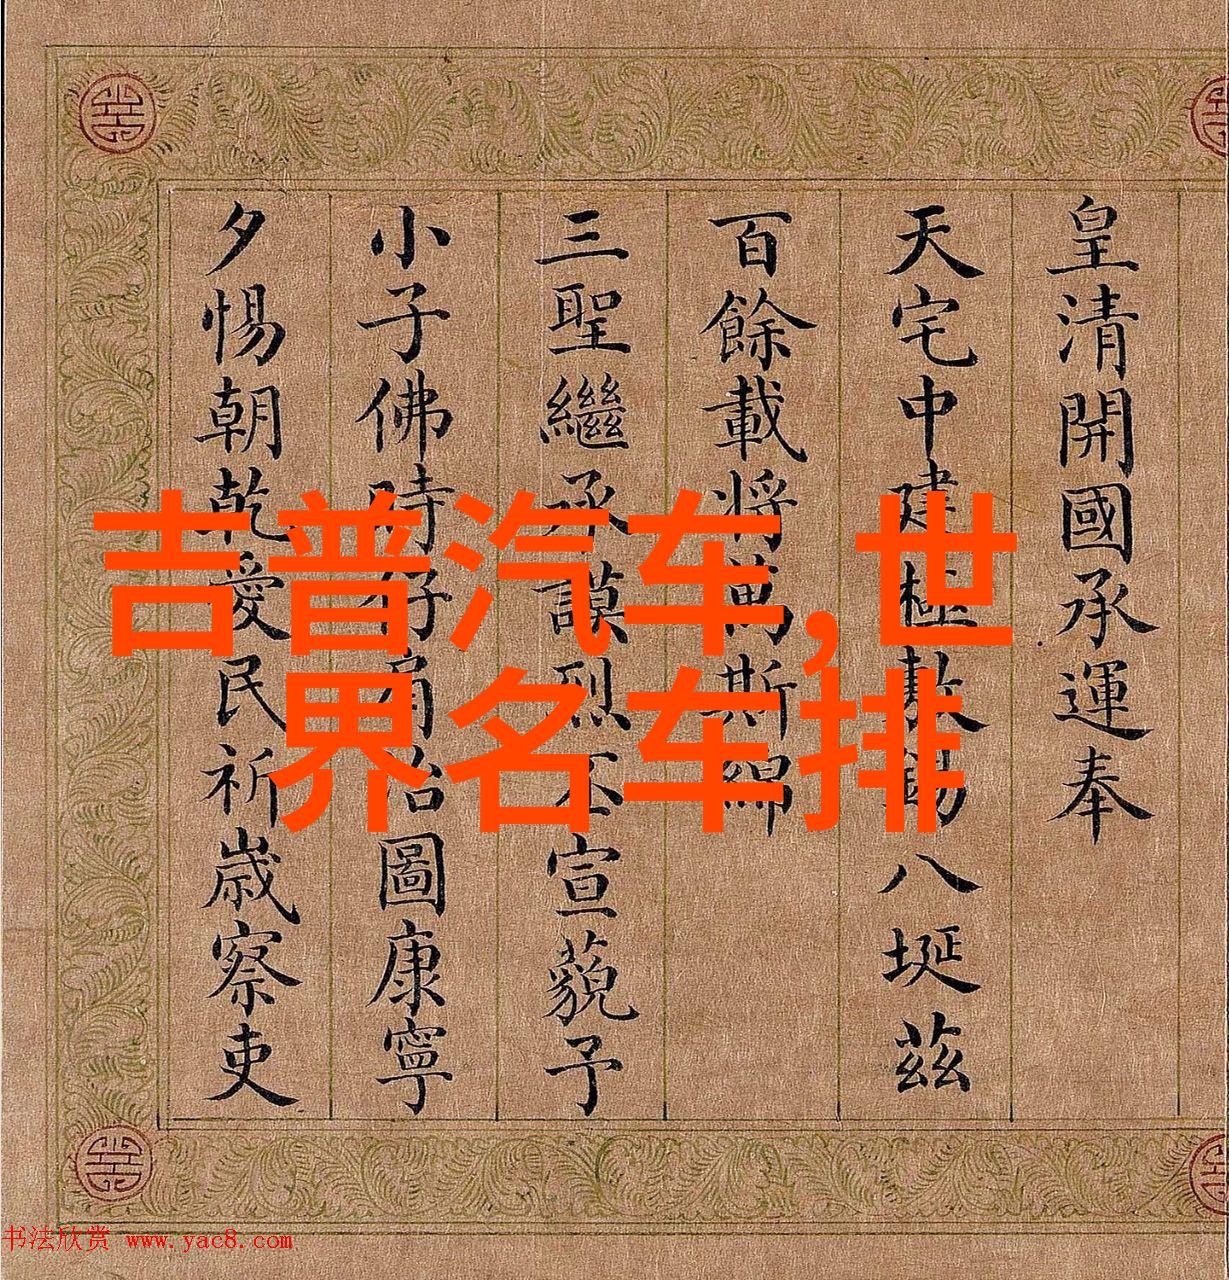 皇清開國承運奉
天宅中建極敷錫八埏茲
百餘載將萬斯綿
三聖繼承謨烈丕宣藐予
小子佛時仔肩治圖康寧
夕惕朝乾愛民祈歲察吏
吉普汽车,世
界名车排
书法欣赏 www.yac8.com